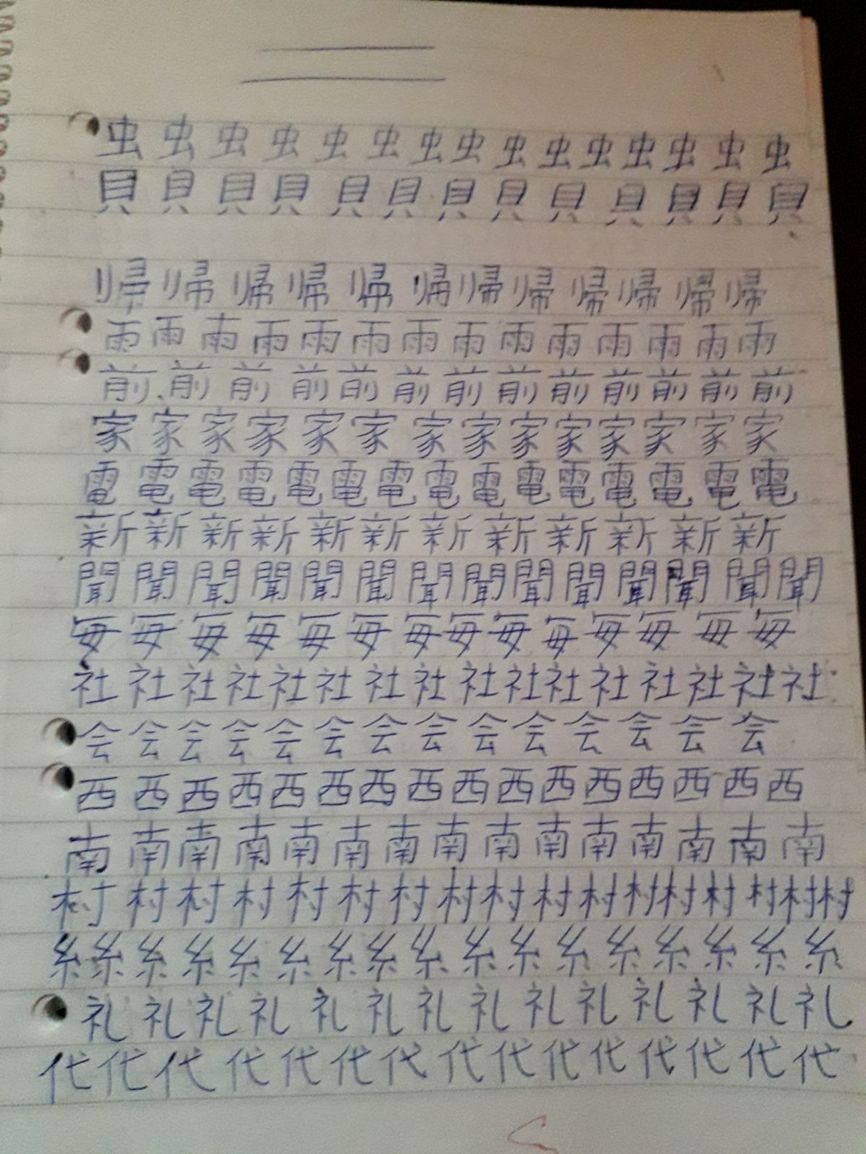 虫 虫 虫 虫 虫 虫 虫 虫 虫 虫 虫 虫 虫 虫 虫
貝 貝 貝 貝 貝 貝 貝 貝 貝 貝 貝 貝 貝
帰 帰 帰 帰 帰 帰 帰 帰 帰 帰 帰 帰
雨 雨 雨 雨 雨 雨 雨 雨 雨 雨 雨 雨 雨 雨
前 前 前 前 前 前 前 前 前 前 前 前 前
家 家 家 家 家 家 家 家 家 家 家 家 家 家
電 電 電 電 電 電 電 電 電 電 電 電 電 電 電
新 新 新 新 新 新 新 新 新 新 新 新
聞 聞 聞 聞 聞 聞 聞 聞 聞 聞 聞 聞 聞 聞
毎 毎 毎 毎 毎 毎 毎 毎 毎 毎 毎 毎 毎 毎
社 社 社 社 社 社 社 社 社 社 社 社 社 社 社 社
会 会 会 会 会 会 会 会 会 会 会 会 会 会
西 西 西 西 西 西 西 西 西 西 西 西 西 西 西
南 南 南 南 南 南 南 南 南 南 南 南 南 南
村 村 村 村 村 村 村 村 村 村 村 村 村 村 村 村 村
糸 糸 糸 糸 糸 糸 糸 糸 糸 糸 糸 糸 糸 糸 糸 糸 糸
礼 礼 礼 礼 礼 礼 礼 礼 礼 礼 礼 礼 礼 礼
代 代 代 代 代 代 代 代 代 代 代 代 代 代 代